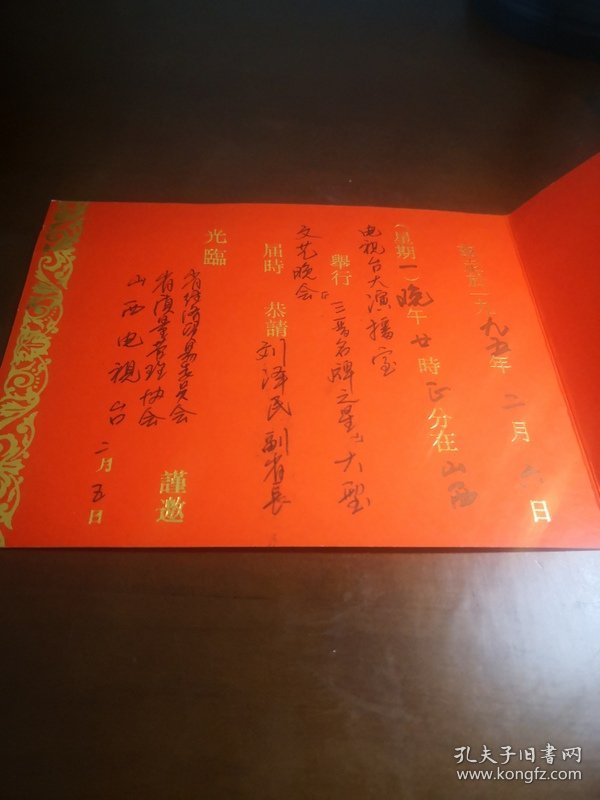 謹訂於一九九五年 二月 六日
(星期一)晚午廿時正分在山西
电视台大演播室
舉行 《三晋名牌之星》大型
文艺晚会
屆時 恭請 刘泽民副省长
光臨
省经济贸易委员会
省质量管理协会
山西电视台
謹邀
二月五日
孔夫子旧书网
www.kongfz.com